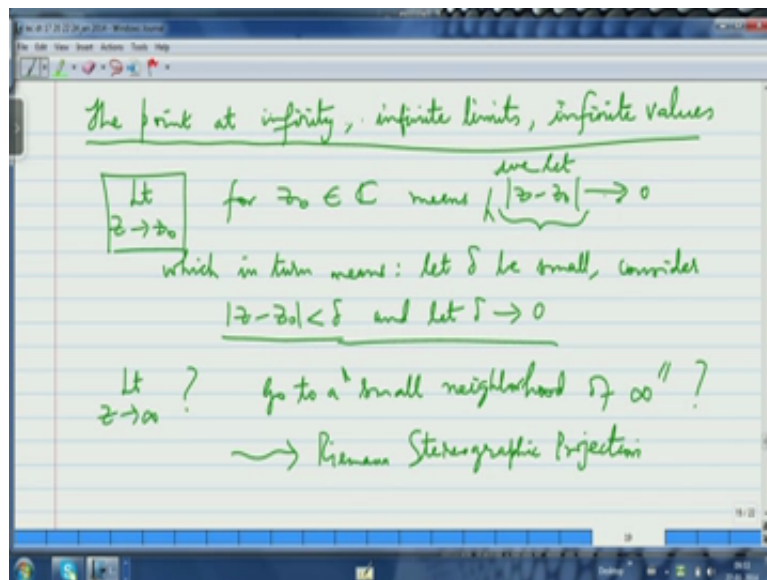 File Edit View Insert Actions Tools Help
The point at infinity, infinite limits, infinite values
we let
Lt z→z₀ for z₀ ∈ ℂ means |z-z₀| → 0
which in turn means: let δ be small, consider
|z-z₀|<δ and let δ → 0
Lt z→∞ ? go to a "small neighborhood of ∞" ?
⟶ Riemann Stereographic Projection
19